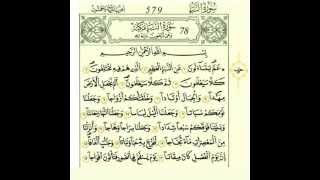 سُورَةُ النَّبَإِ
579
سُورَةُ النَّبَإِ مَكِّيَّة
78
بِسْمِ اللَّهِ الرَّحْمَٰنِ الرَّحِيمِ
عَمَّ يَتَسَاءَلُونَ عَنِ النَّبَإِ الْعَظِيمِ الَّذِي هُمْ فِيهِ مُخْتَلِفُونَ
كَلَّا سَيَعْلَمُونَ ثُمَّ كَلَّا سَيَعْلَمُونَ أَلَمْ نَجْعَلِ الْأَرْضَ
مِهَادًا وَالْجِبَالَ أَوْتَادًا وَخَلَقْنَاكُمْ أَزْوَاجًا وَجَعَلْنَا
نَوْمَكُمْ سُبَاتًا وَجَعَلْنَا اللَّيْلَ لِبَاسًا وَجَعَلْنَا النَّهَارَ مَعَاشًا
وَبَنَيْنَا فَوْقَكُمْ سَبْعًا شِدَادًا وَجَعَلْنَا سِرَاجًا وَهَّاجًا وَأَنْزَلْنَا
مِنَ الْمُعْصِرَاتِ مَاءً ثَجَّاجًا لِنُخْرِجَ بِهِ حَبًّا وَنَبَاتًا وَجَنَّاتٍ أَلْفَافًا
إِنَّ يَوْمَ الْفَصْلِ كَانَ مِيقَاتًا يَوْمَ يُنْفَخُ فِي الصُّورِ فَتَأْتُونَ أَفْوَاجًا